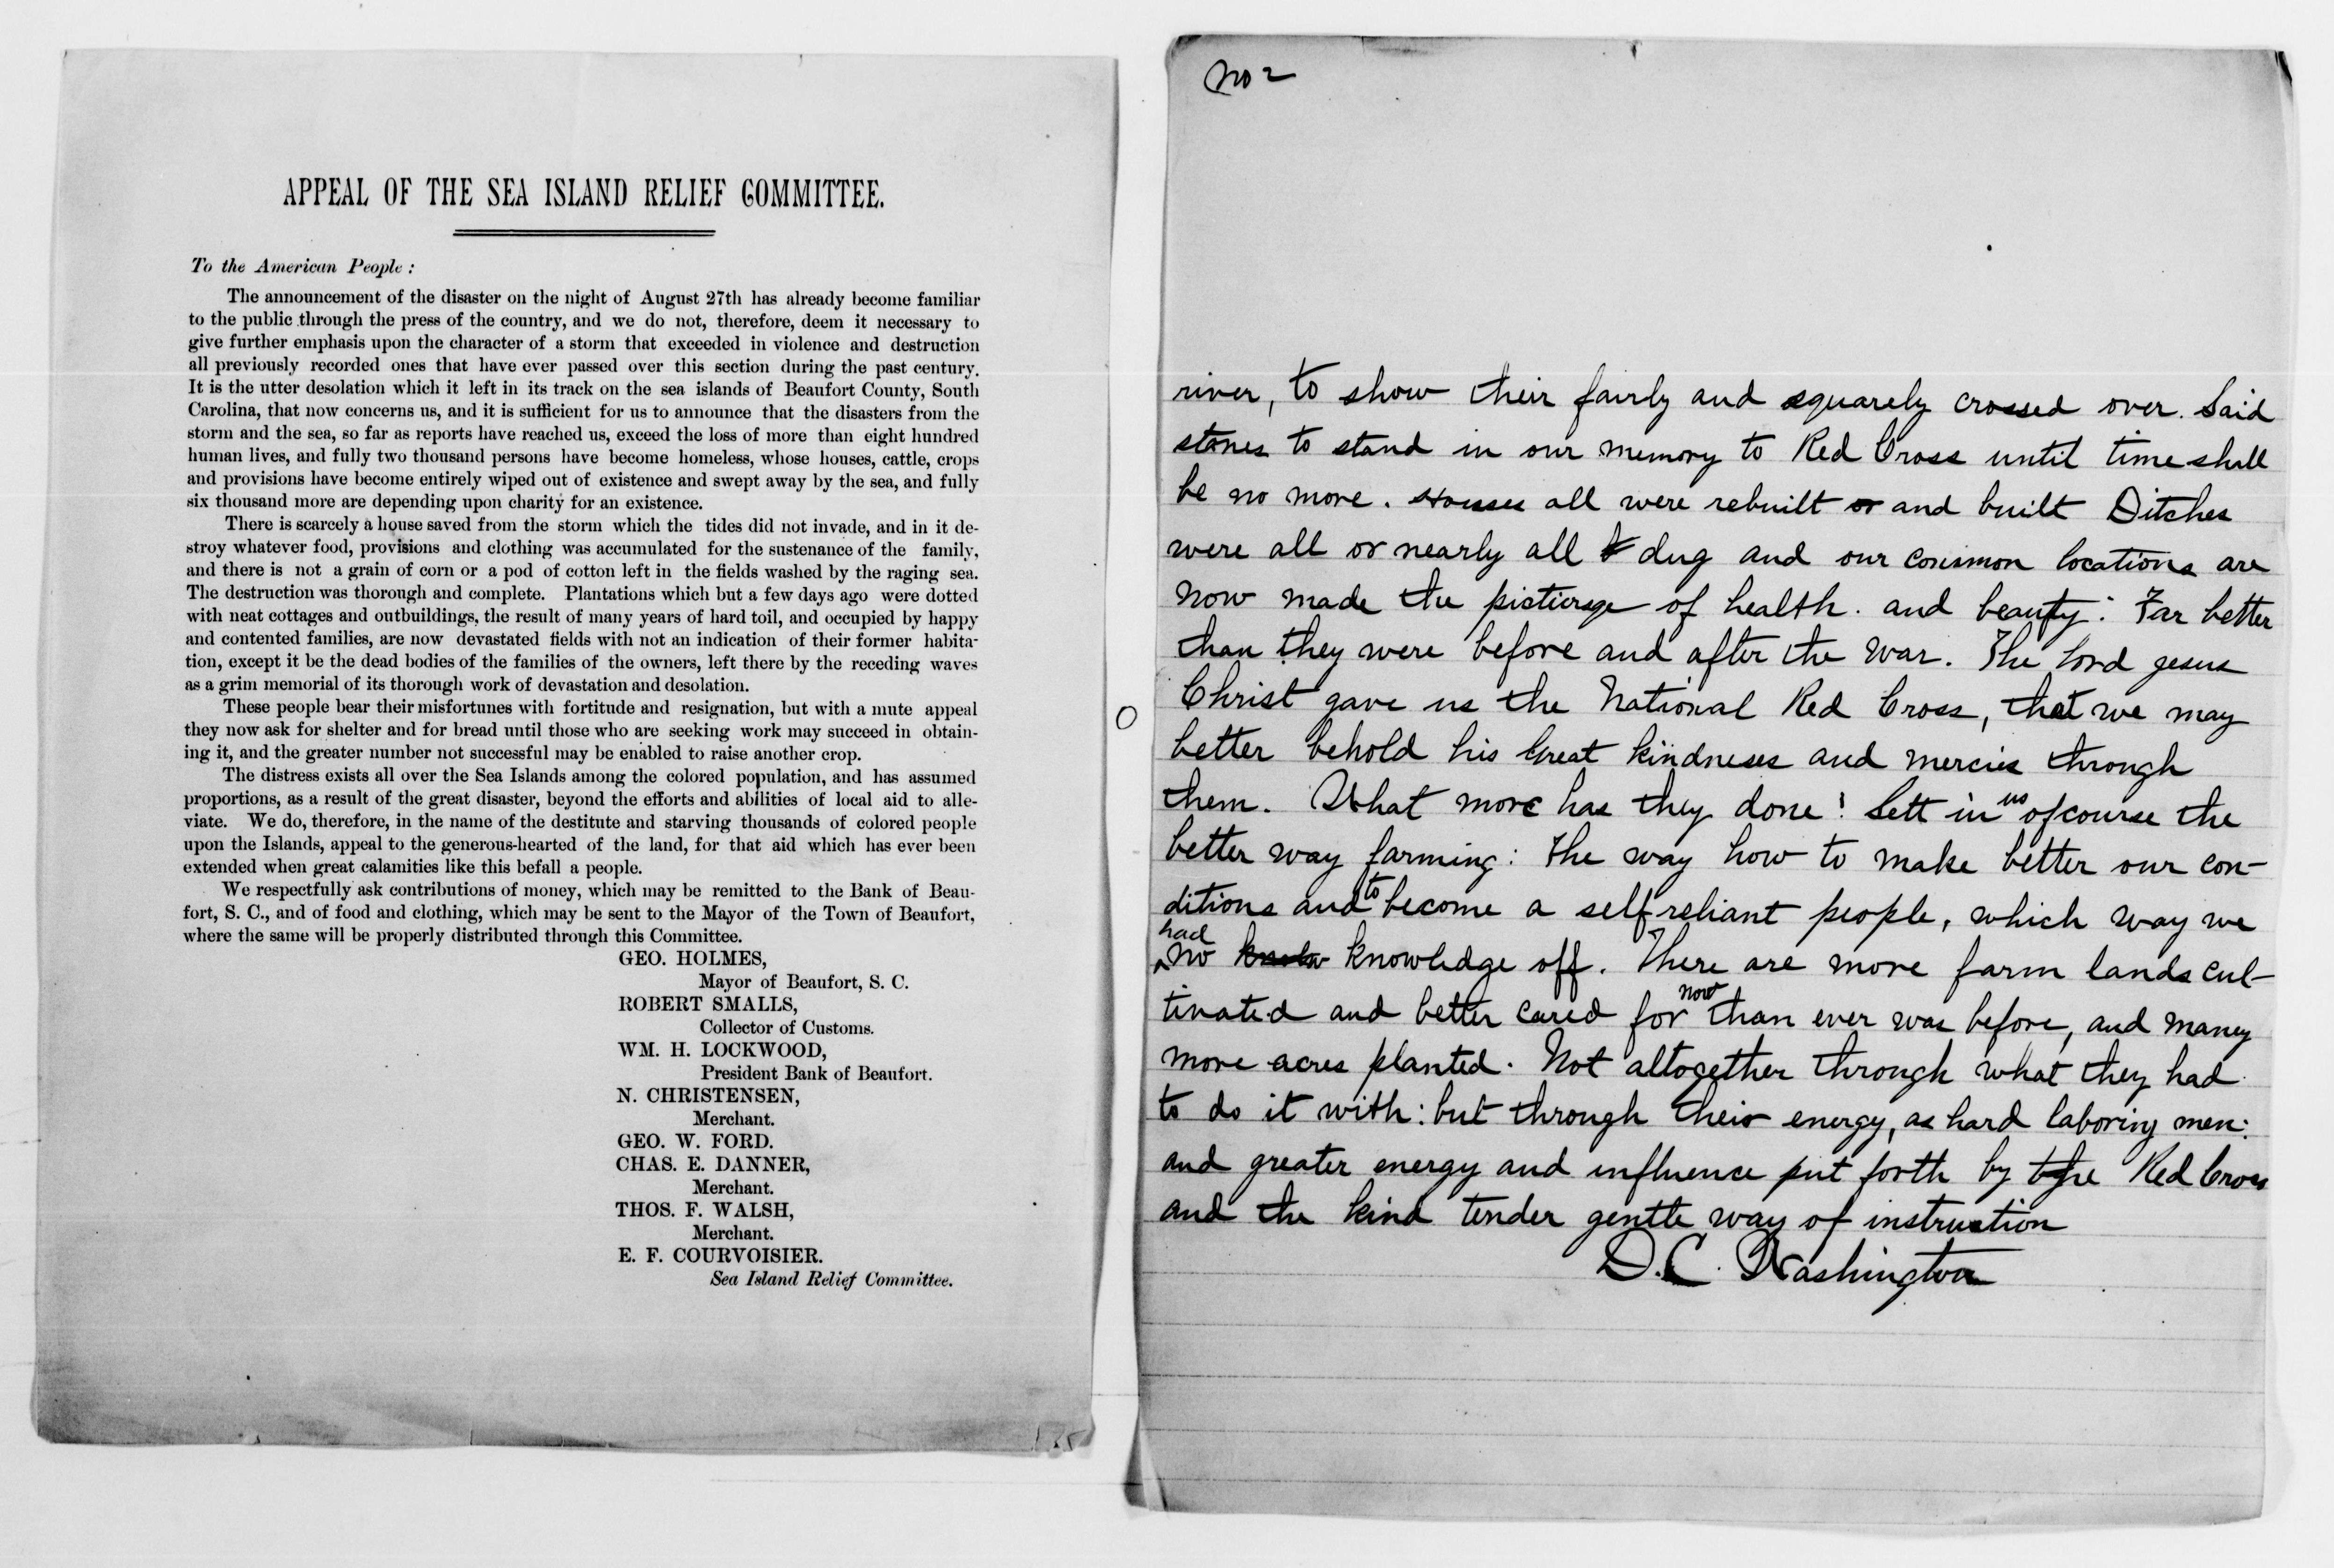 APPEAL OF THE SEA ISLAND RELIEF COMMITTEE.
To the American People :
The announcement of the disaster on the night of August 27th has already become familiar
to the public through the press of the country, and we do not, therefore, deem it necessary to
give further emphasis upon the character of a storm that exceeded in violence and destruction
all previously recorded ones that have ever passed over this section during the past century.
It is the utter desolation which it left in its track on the sea islands of Beaufort County, South
Carolina, that now concerns us, and it is sufficient for us to announce that the disasters from the
storm and the sea, so far as reports have reached us, exceed the loss of more than eight hundred
human lives, and fully two thousand persons have become homeless, whose houses, cattle, crops
and provisions have become entirely wiped out of existence and swept away by the sea, and fully
six thousand more are depending upon charity for an existence.
There is scarcely a house saved from the storm which the tides did not invade, and in it de-
stroy whatever food, provisions and clothing was accumulated for the sustenance of the family,
and there is not a grain of corn or a pod of cotton left in the fields washed by the raging sea.
The destruction was thorough and complete. Plantations which but a few days ago were dotted
with neat cottages and outbuildings, the result of many years of hard toil, and occupied by happy
and contented families, are now devastated fields with not an indication of their former habita-
tion, except it be the dead bodies of the families of the owners, left there by the receding waves
as a grim memorial of its thorough work of devastation and desolation.
These people bear their misfortunes with fortitude and resignation, but with a mute appeal
they now ask for shelter and for bread until those who are seeking work may succeed in obtain-
ing it, and the greater number not successful may be enabled to raise another crop.
The distress exists all over the Sea Islands among the colored population, and has assumed
proportions, as a result of the great disaster, beyond the efforts and abilities of local aid to alle-
viate. We do, therefore, in the name of the destitute and starving thousands of colored people
upon the Islands, appeal to the generous-hearted of the land, for that aid which has ever been
extended when great calamities like this befall a people.
We respectfully ask contributions of money, which may be remitted to the Bank of Beau-
fort, S. C., and of food and clothing, which may be sent to the Mayor of the Town of Beaufort,
where the same will be properly distributed through this Committee.
GEO. HOLMES,
Mayor of Beaufort, S. C.
ROBERT SMALLS,
Collector of Customs.
WM. H. LOCKWOOD,
President Bank of Beaufort.
N. CHRISTENSEN,
Merchant.
GEO. W. FORD.
CHAS. E. DANNER,
Merchant.
THOS. F. WALSH,
Merchant.
E. F. COURVOISIER.
Sea Island Relief Committee.
No 2
river, to show their fairly and squarely crossed over. Said
stones to stand in our memory to Red Cross until time shall
be no more. Houses all were rebuilt or and built Ditches
were all or nearly all dug and our common locations are
now made the of health. and beauty: Far better
than they were before and after the war. The Lord Jesus
Christ gave us the National Red Cross, that we may
better behold his Great kindness and mercies through
them. What more has they done! Sett in us ofcourse the
better way farming: the way how to make better our con-
ditions and to become a self reliant people, which way we
had no know knowledge off. There are more farm lands cul-
tivated and better cared for now than ever was before, and many
more acres planted. Not altogether through what they had
to do it with: but through their energy, as hard laboring men:
and greater energy and influence put forth by the Red Cross
and the kind tender gentle way of instruction
D. C. Washington